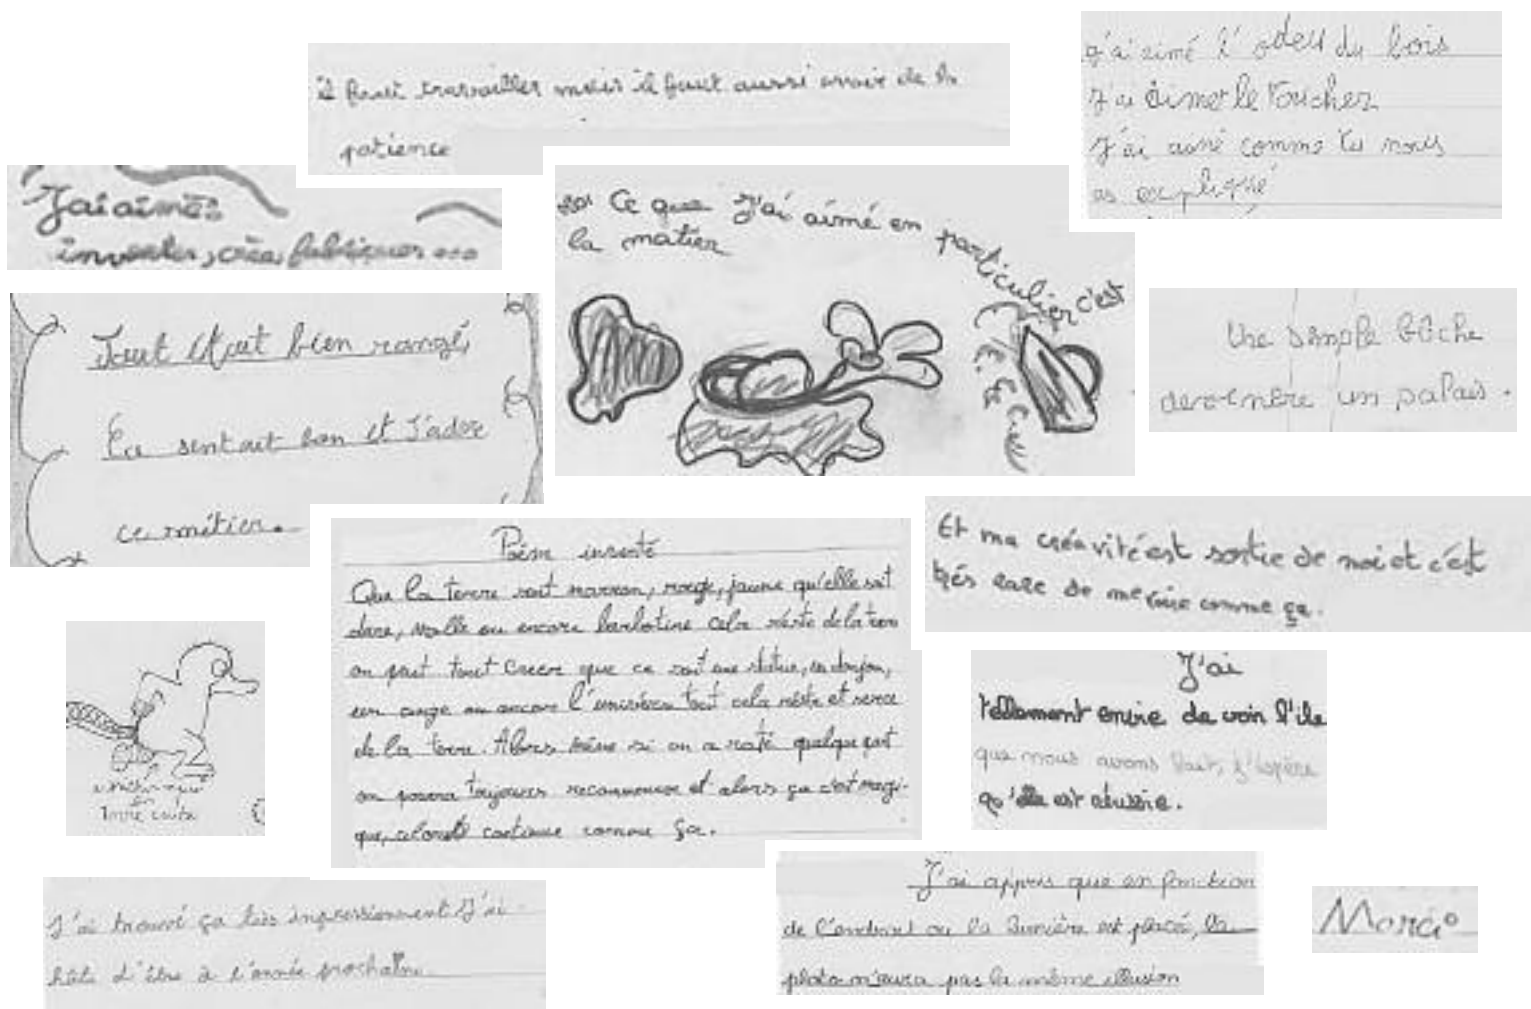 il faut travailler mais il faut aussi avoir de la
patience
j'ai aimé l'odeu du bois
J'ai aimer le toucher
J'ai aimé comme tu nous
as expliqué
J'ai aimés
inventer, crée, fabriquer ...
Ce que J'ai aimé en particulier c'est
la matier
Tout était bien rangé,
Ça sentait bon et J'adore
ce métier.
Une simple bûche
un palais.
Et ma créavité est sortie de moi et c'ést
trés rare de me comme ça.
Poème inventé
Que la terre soit marron, rouge, jaune qu'elle soit
dure, molle ou encore barbotine cela réste de la terre
on peut tout créer que ce soit une statue, un donjon,
un ange ou encore l'univers tout cela réste et
de la terre. Alors même si on a raté quelque part
on pourra toujours recommencer et alors ça c'est magi-
que, continue comme ça.
Terre cuite
J'ai
tellement envie de voir l'ile
que nous avons fait, j'éspère
qu'elle est réussie.
J'ai trouvé ça très impressionnent J'ai
hâte d'être à l'année prochaine
J'ai appris que en fonction
de l'endroit ou la lumière est placé, la
photo n'aura pas la même illusion
Merci